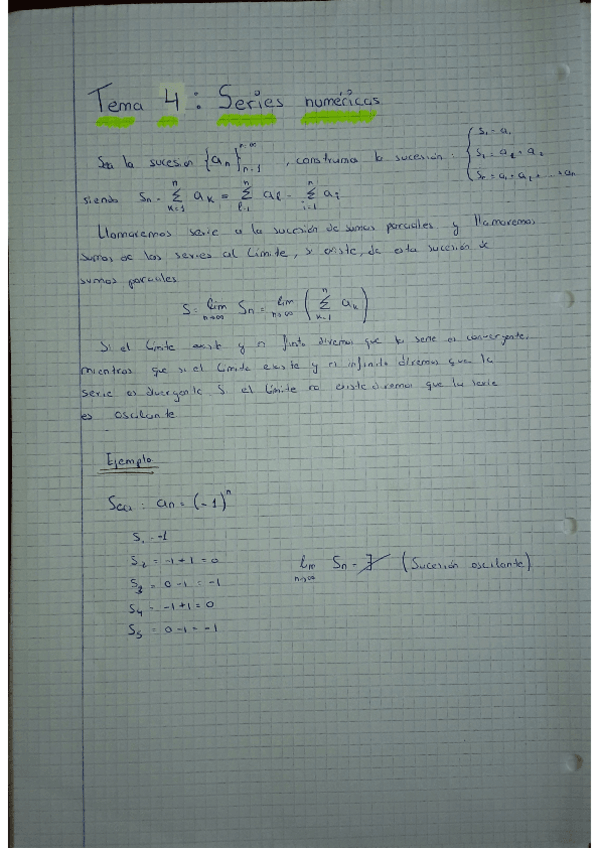 Tema 4: Series numéricas
Sea la sucesión {aₙ}ₙ₌₁ⁿ⁼∞, construimos la sucesión: { S₁ = a₁
S₂ = a₁ + a₂
Sₙ = a₁ + a₂ + ... + aₙ
siendo Sₙ = Σₖ₌₁ⁿ aₖ = Σₗ₌₁ⁿ aₗ = Σᵢ₌₁ⁿ aᵢ
Llamaremos serie a la sucesión de sumas parciales y llamaremos
sumas de las series al límite, si existe, de esta sucesión de
sumas parciales
S = lim n→∞ Sₙ = lim n→∞ (Σₖ₌₁ⁿ aₖ)
Si el límite existe y es finito diremos que la serie es convergente,
mientras que si el límite existe y es infinito diremos que la
serie es divergente Si el límite no existe diremos que la serie
es oscilante
Ejemplo
Sea: aₙ = (-1)ⁿ
S₁ = -1
S₂ = -1+1 = 0
lim n→∞ Sₙ = ∄ (Sucesión oscilante)
S₃ = 0-1 = -1
S₄ = -1+1 = 0
S₅ = 0-1 = -1